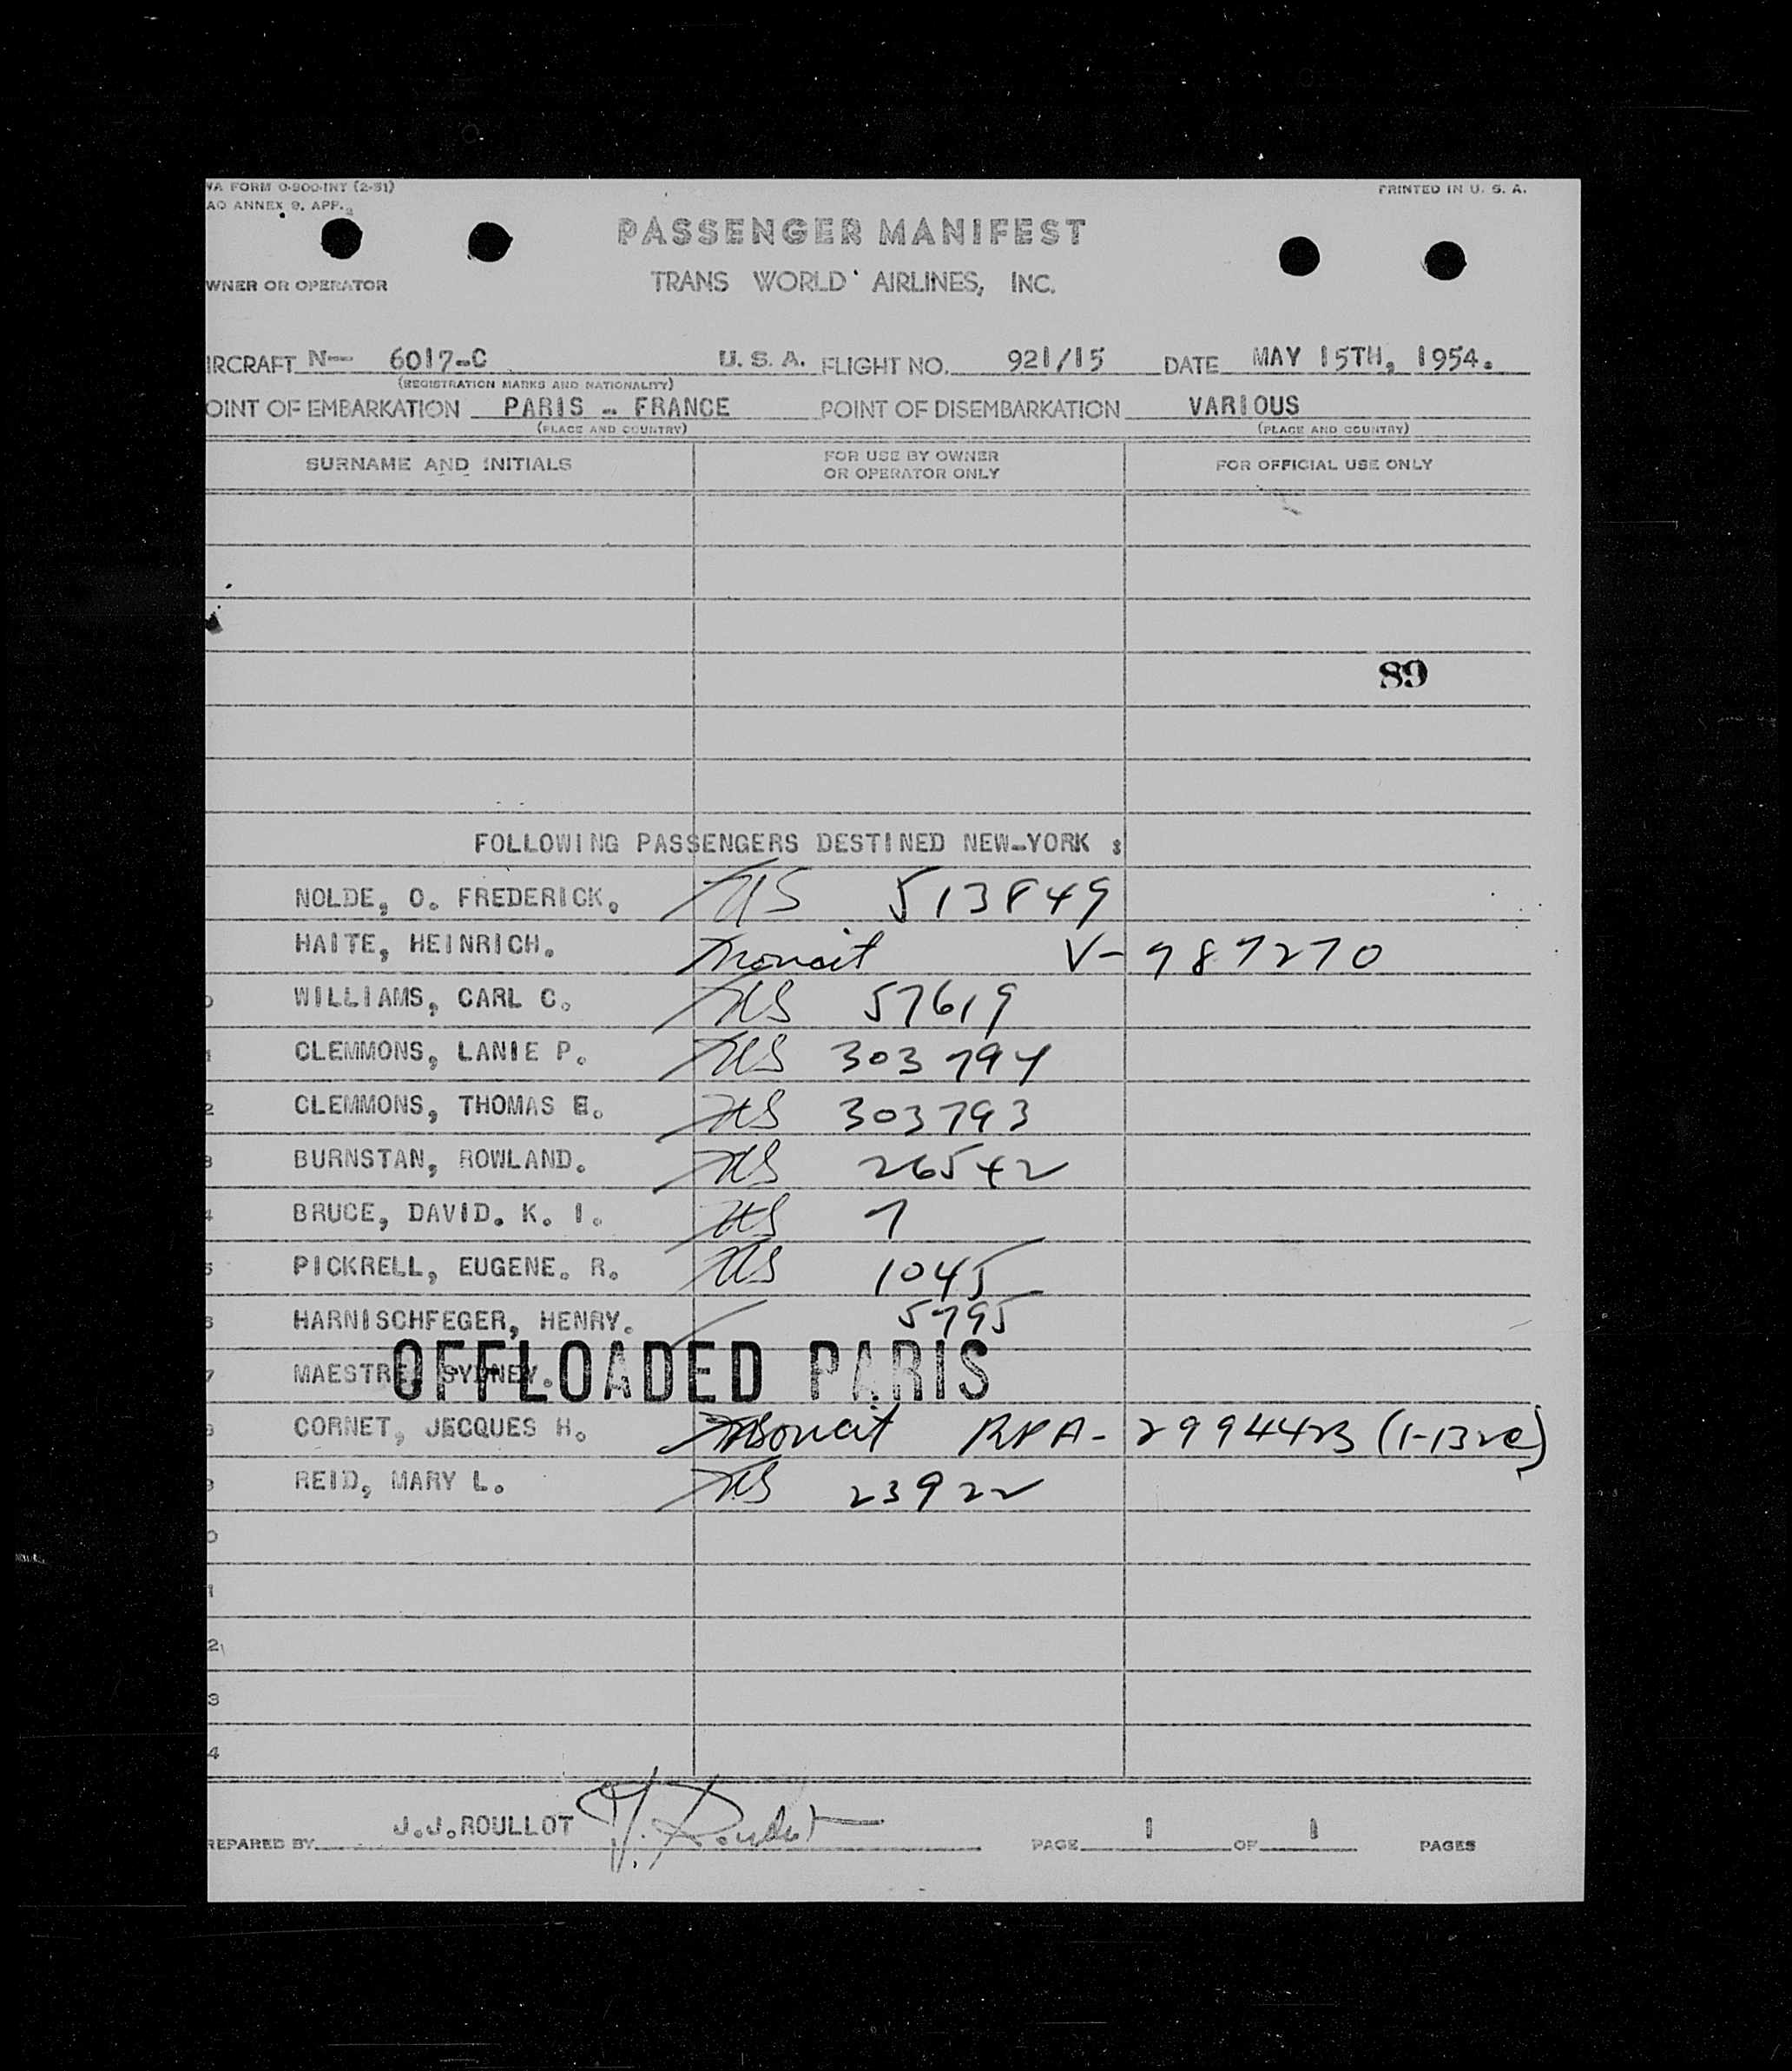 WA FORM 0-900-INT (2-51)
PRINTED IN U. S. A.
AO ANNEX 9. APP. 2
PASSENGER MANIFEST
WNER OR OPERATOR TRANS WORLD AIRLINES, INC.
IRCRAFT N— 6017-C U. S. A. FLIGHT NO. 921/15 DATE MAY 15TH, 1954.
(REGISTRATION MARKS AND NATIONALITY)
OINT OF EMBARKATION PARIS - FRANCE POINT OF DISEMBARKATION VARIOUS
(PLACE AND COUNTRY) (PLACE AND COUNTRY)
SURNAME AND INITIALS FOR USE BY OWNER OR OPERATOR ONLY FOR OFFICIAL USE ONLY
89
FOLLOWING PASSENGERS DESTINED NEW-YORK :
NOLDE, O. FREDERICK, US 513849
HAITE, HEINRICH. V- 987270
0 WILLIAMS, CARL C. US 57619
1 CLEMMONS, LANIE P. US 303794
2 CLEMMONS, THOMAS E. US 303793
3 BURNSTAN, ROWLAND. US 26542
4 BRUCE, DAVID. K. I. US 7
5 PICKRELL, EUGENE. R. US 1045
6 HARNISCHFEGER, HENRY. 5795
7 MAESTRE, SYDNEY. OFFLOADED PARIS
8 CORNET, JECQUES H. RPA-
9 REID, MARY L. US 23922
0
1
2
3
4
REPARED BY J.J.ROULLOT J. Roullot PAGE 1 OF 1 PAGES